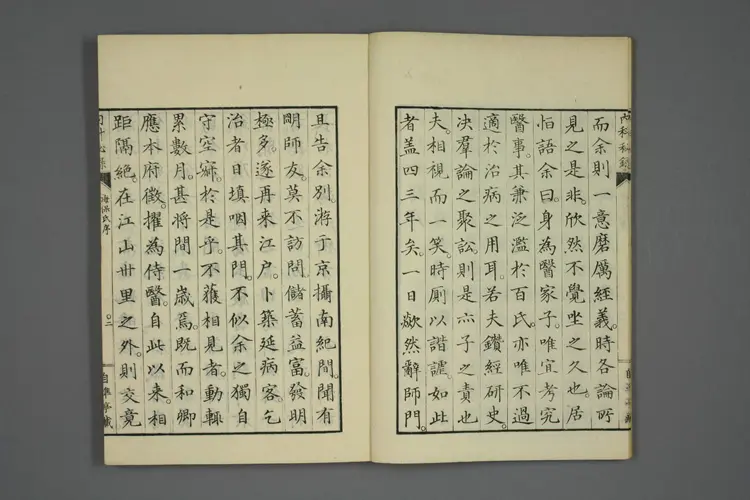 而余則一意磨厲經義。時各論所
見之是非。欣然不覺坐之久也。居
恒語余曰。身為醫家子。唯宜考究
醫事。其兼泛濫於百氏。亦唯不過
適於治病之用耳。若夫鑽經研史。
决羣論之聚訟。則是六子之責也
夫。相視而一笑。時厠以諧謔。如此
者蓋四三年矣。一日歘然辭師門。
且告余別。游于京攝南紀間。聞有
明師友。莫不訪問。儲蓄益富。發明
極多。遂再来江戶。卜築延病客。乞
治者日填咽其門。不似余之獨自
守空寂。於是乎。不獲相見者。動輒
累數月。甚將間一歳焉。既而和卿
應本府徵。擢為侍醫。自此以来。相
距隔絕。在江山卌里之外。則交竟
内科秘錄
序
〇二